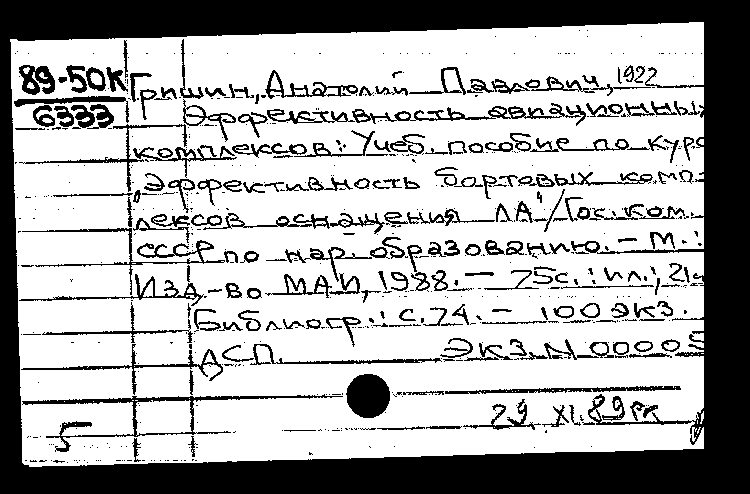 89-50К Гришин, Анатолий Павлович, 1922
6333 Эффективность авиационных
комплексов: Учеб. пособие по курс
"Эффективность бортовых комп-
лексов оснащения ЛА"/Гос. ком.
СССР по нар. образованию. - М.:
Изд-во МАИ, 1988. - 75с. : ил.; 21
Библиогр.: с. 74. - 100 экз.
ДСП. Экз. N 00005
29.XI.89
5